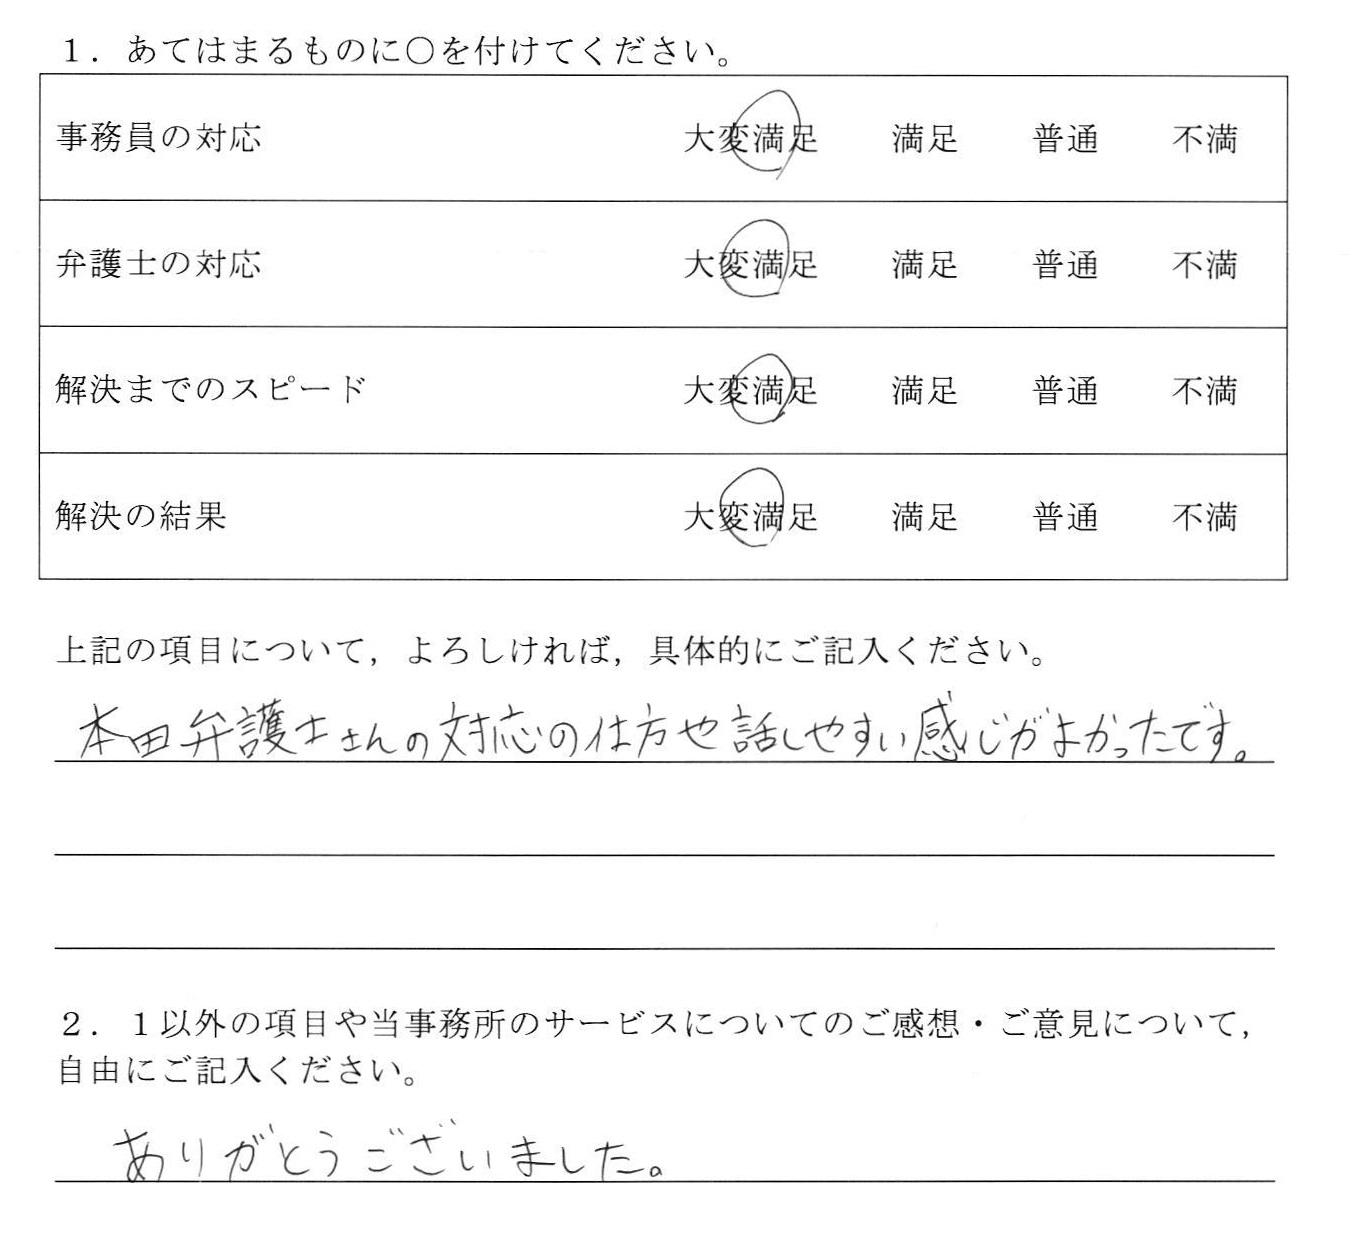 １．あてはまるものに〇を付けてください。
事務員の対応 大変満足 満足 普通 不満
弁護士の対応 大変満足 満足 普通 不満
解決までのスピード 大変満足 満足 普通 不満
解決の結果 大変満足 満足 普通 不満
上記の項目について，よろしければ，具体的にご記入ください。
本田弁護士さんの対応の仕方や話しやすい感じがよかったです。
２．１以外の項目や当事務所のサービスについてのご感想・ご意見について，
自由にご記入ください。
ありがとうございました。